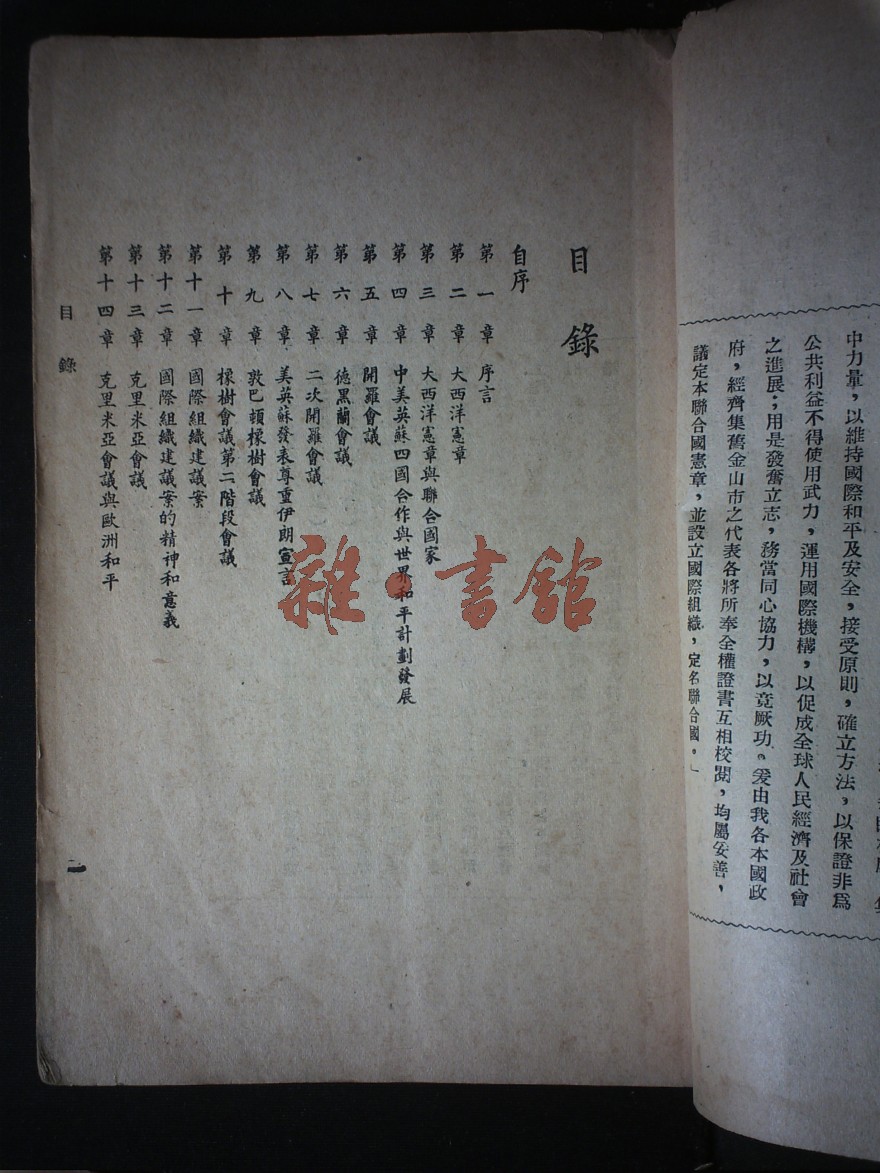 中力量，以維持國際和平及安全，接受原則，確立方法，以保證非爲
公共利益不得使用武力，運用國際機構，以促成全球人民經濟及社會
之進展；用是發奮立志，務當同心協力，以竟厥功。爰由我各本國政
府，經齊集舊金山市之代表各將所奉全權證書互相校閱，均屬妥善，
議定本聯合國憲章，並設立國際組織，定名聯合國。」
目錄
自序
第一章 序言
第二章 大西洋憲章
第三章 大西洋憲章與聯合國家
第四章 中美英蘇四國合作與世界和平計劃發展
第五章 開羅會議
第六章 德黑蘭會議
第七章 二次開羅會議
第八章 美英蘇發表尊重伊朗宣言
第九章 敦巴頓橡樹會議
第十章 橡樹會議第二階段會議
第十一章 國際組織建議案
第十二章 國際組織建議案的精神和意義
第十三章 克里米亞會議
第十四章 克里米亞會議與歐洲和平
目錄
雜·書館